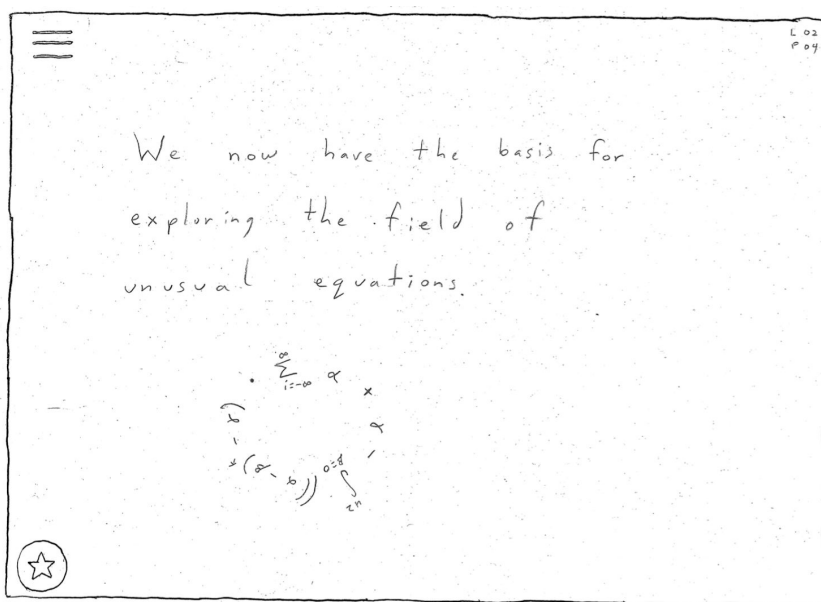 L 02
P 04
We now have the basis for
exploring the field of
unusual equations.
∞
Σ α
i=-∞
×
α